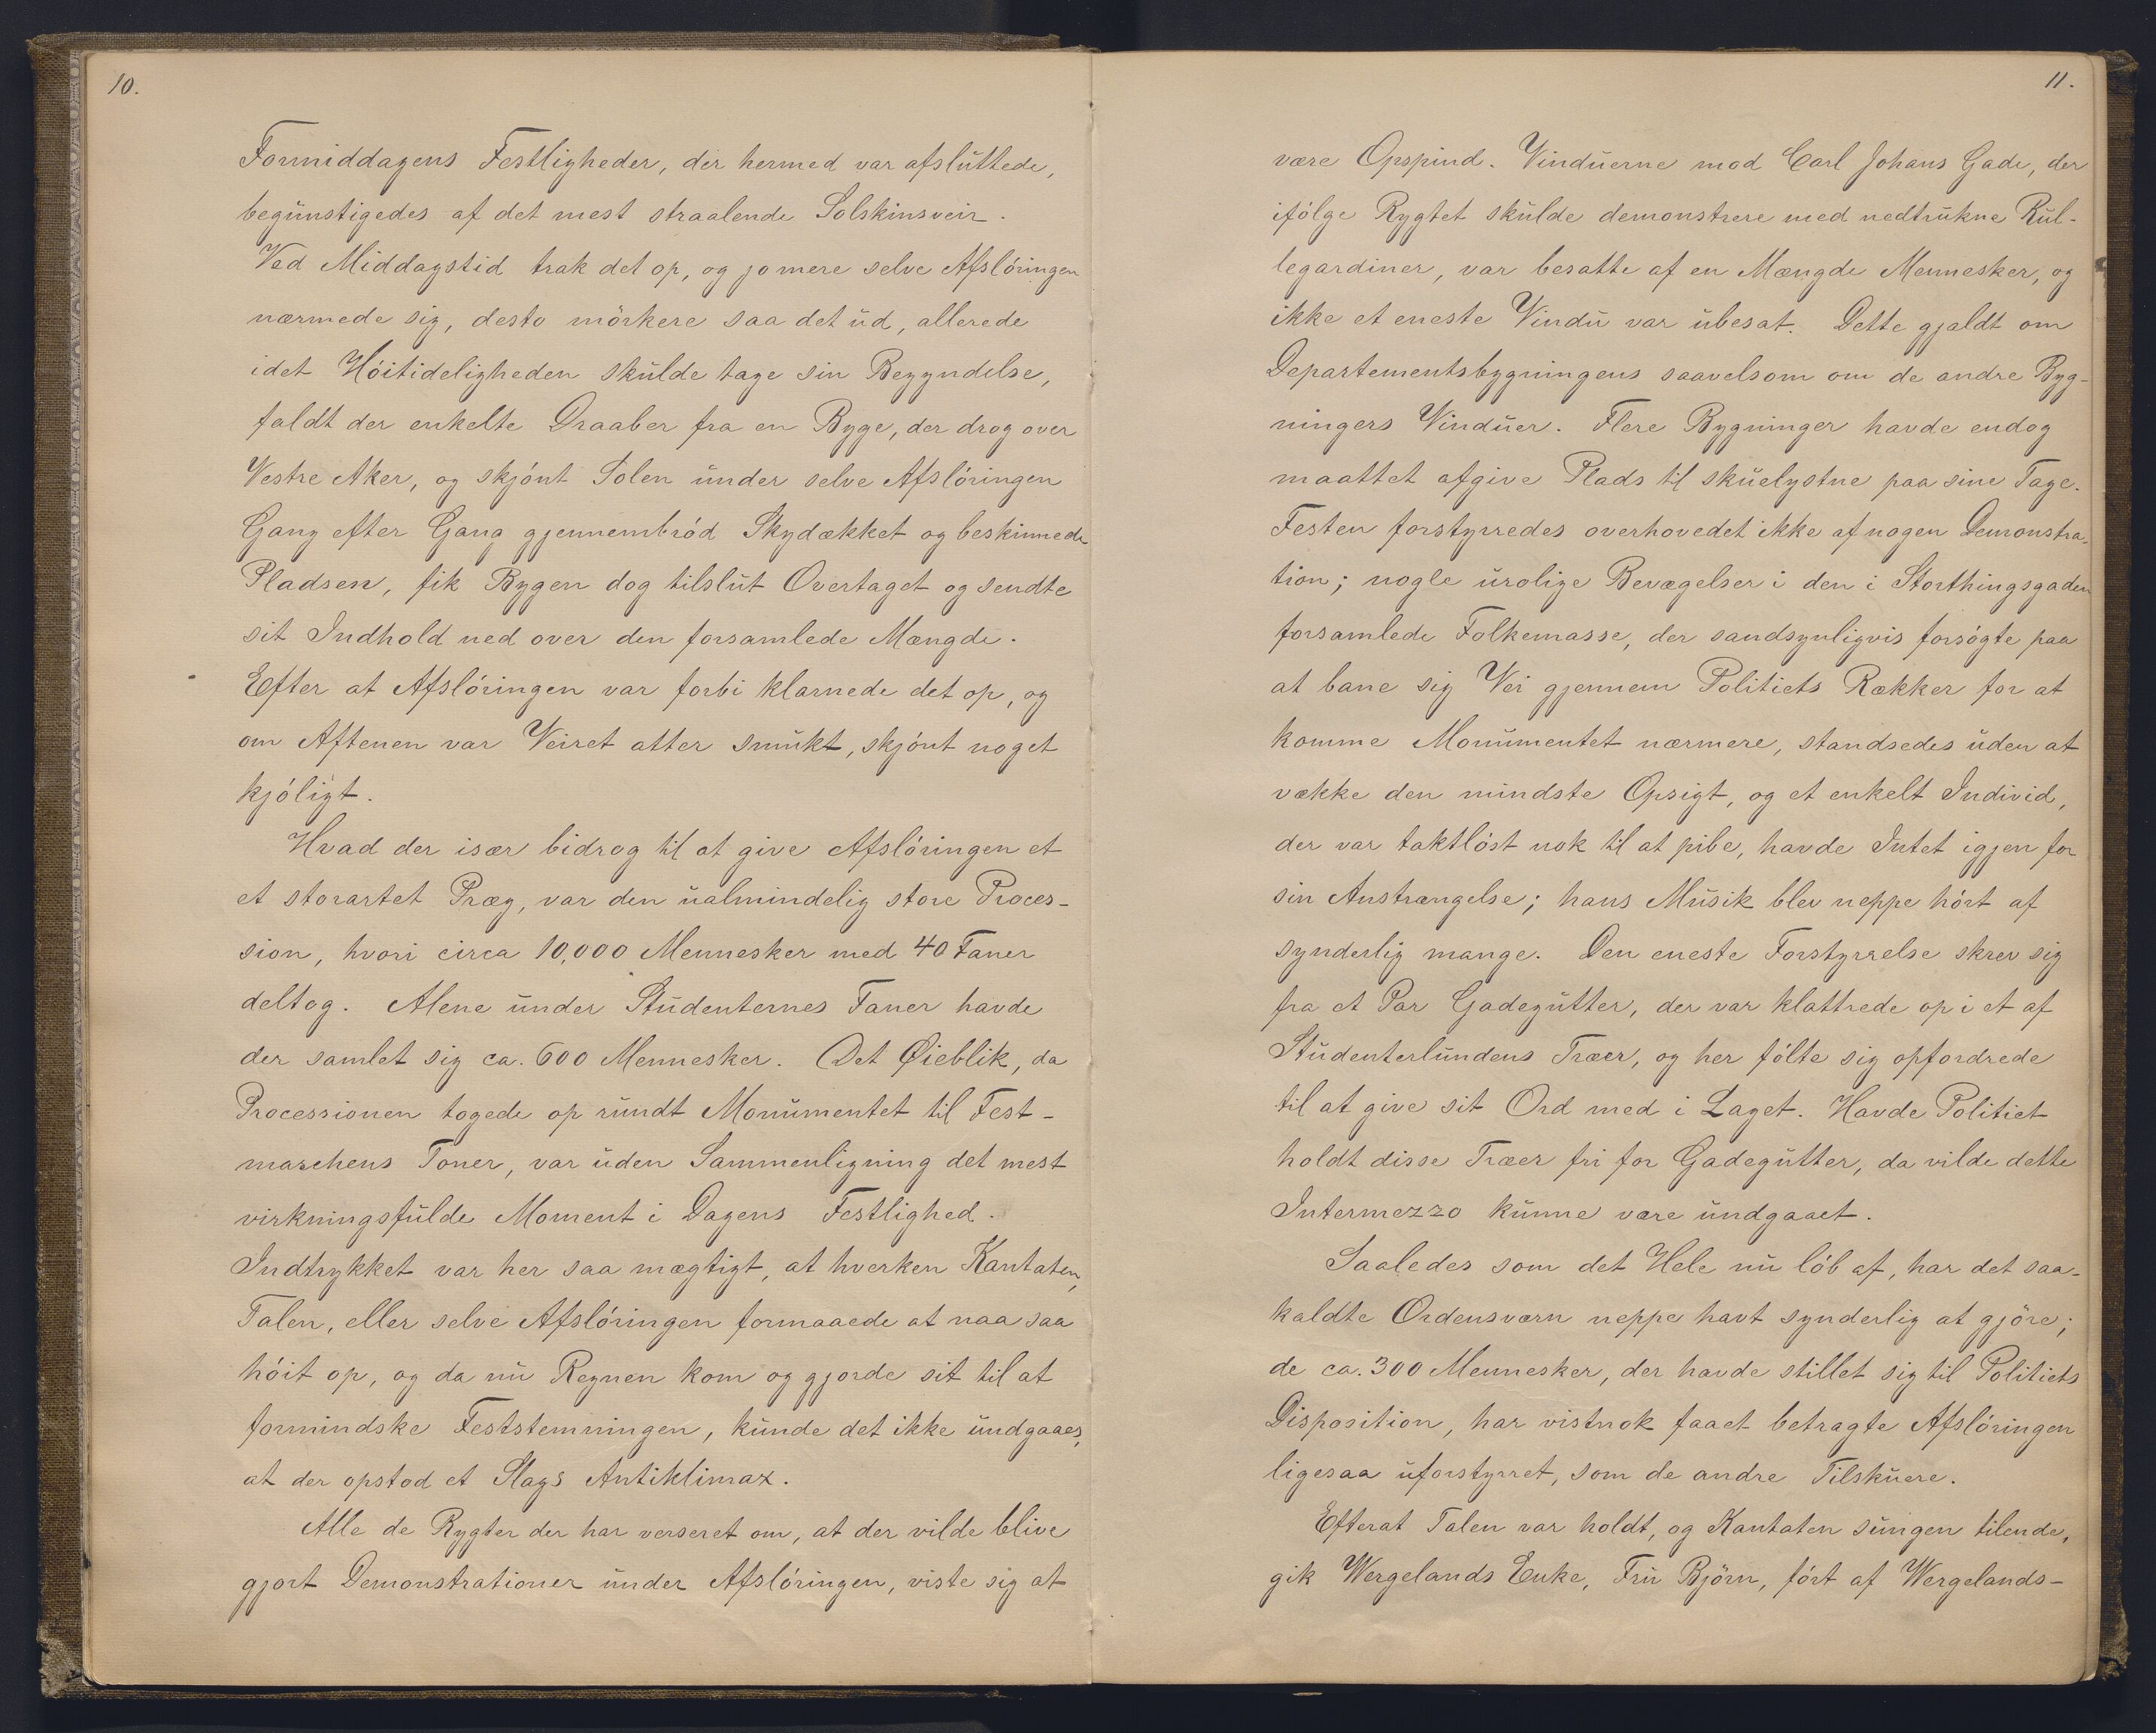 10.
Formiddagens Festligheder, der hermed var afsluttede,
begunstigedes af det mest straalende Solskinsveir.
Ved Middagstid trak det op, og jo mere selve Afslöringen
nærmede sig, desto mörkere saa det ud, allerede
idet Höitideligheden skulde tage sin Begyndelse,
faldt der enkelte Draaber fra en Byge, der drog over
Vestre Aker, og skjönt Solen under selve Afslöringen
Gang efter Gang gjennembröd Skydækket og beskinnede
Pladsen, fik Bygen dog tilslut Overtaget og sendte
sit Indhold ned over den forsamlede Mængde.
Efter at Afslöringen var forbi klarnede det op, og
om Aftenen var Veiret atter smukt, skjönt noget
kjöligt.
Hvad der især bidrog til at give Afslöringen et
et storartet Præg, var den ualmindelig store Proces-
sion, hvori circa 10,000 Mennesker med 40 Faner
deltog. Alene under Studenternes Faner havde
der samlet sig ca. 600 Mennesker. Det Øieblik, da
Processionen togede op rundt Monumentet til Fest-
marschens Toner, var uden Sammenligning det mest
virkningsfulde Moment i Dagens Festlighed.
Indtrykket var her saa mægtigt, at hverken Kantaten,
Talen, eller selve Afslöringen formaaede at naa saa
höit op, og da nu Regnen kom og gjorde sit til at
formindske Feststemningen, kunde det ikke undgaaes,
at der opstod et Slags Antiklimax.
Alle de Rygter der har verseret om, at der vilde blive
gjort Demonstrationer under Afslöringen, viste sig at
11.
være Opspind. Vinduerne mod Carl Johans Gade, der
ifölge Rygtet skulde demonstrere med nedtrukne Rul-
legardiner, var besatte af en Mængde Mennesker, og
ikke et eneste Vindu var ubesat. Dette gjaldt om
Departementsbygningens saavelsom om de andre Byg-
ningers Vinduer. Flere Bygninger havde endog
maattet afgive Plads til skuelystne paa sine Tage.
Festen forstyrredes overhovedet ikke af nogen Demonstra-
tion; nogle urolige Bevægelser i den i Storthingsgaden
forsamlede Folkemasse, der sandsynligvis forsögte paa
at bane sig Vei gjennem Politiets Rækker for at
komme Monumentet nærmere, standsedes uden at
vække den mindste Opsigt, og et enkelt Individ,
der var taktlöst nok til at pibe, havde Intet igjen for
sin Anstrængelse; hans Musik blev neppe hört af
synderlig mange. Den eneste Forstyrrelse skrev sig
fra et Par Gadegutter, der var klattrede op i et af
Studenterlundens Træer, og her fölte sig opfordrede
til at give sit Ord med i Laget. Havde Politiet
holdt disse Træer fri for Gadegutter, da vilde dette
Intermezzo kunne være undgaaet.
Saaledes som det Hele nu löb af, har det saa-
kaldte Ordensværn neppe havt synderlig at gjöre;
de ca. 300 Mennesker, der havde stillet sig til Politiets
Disposition, har vistnok faaet betragte Afslöringen
ligesaa uforstyrret, som de andre Tilskuere.
Efterat Talen var holdt, og Kantaten sungen tilende,
gik Wergelands Enke, Fru Björn, fört af Wergelands-